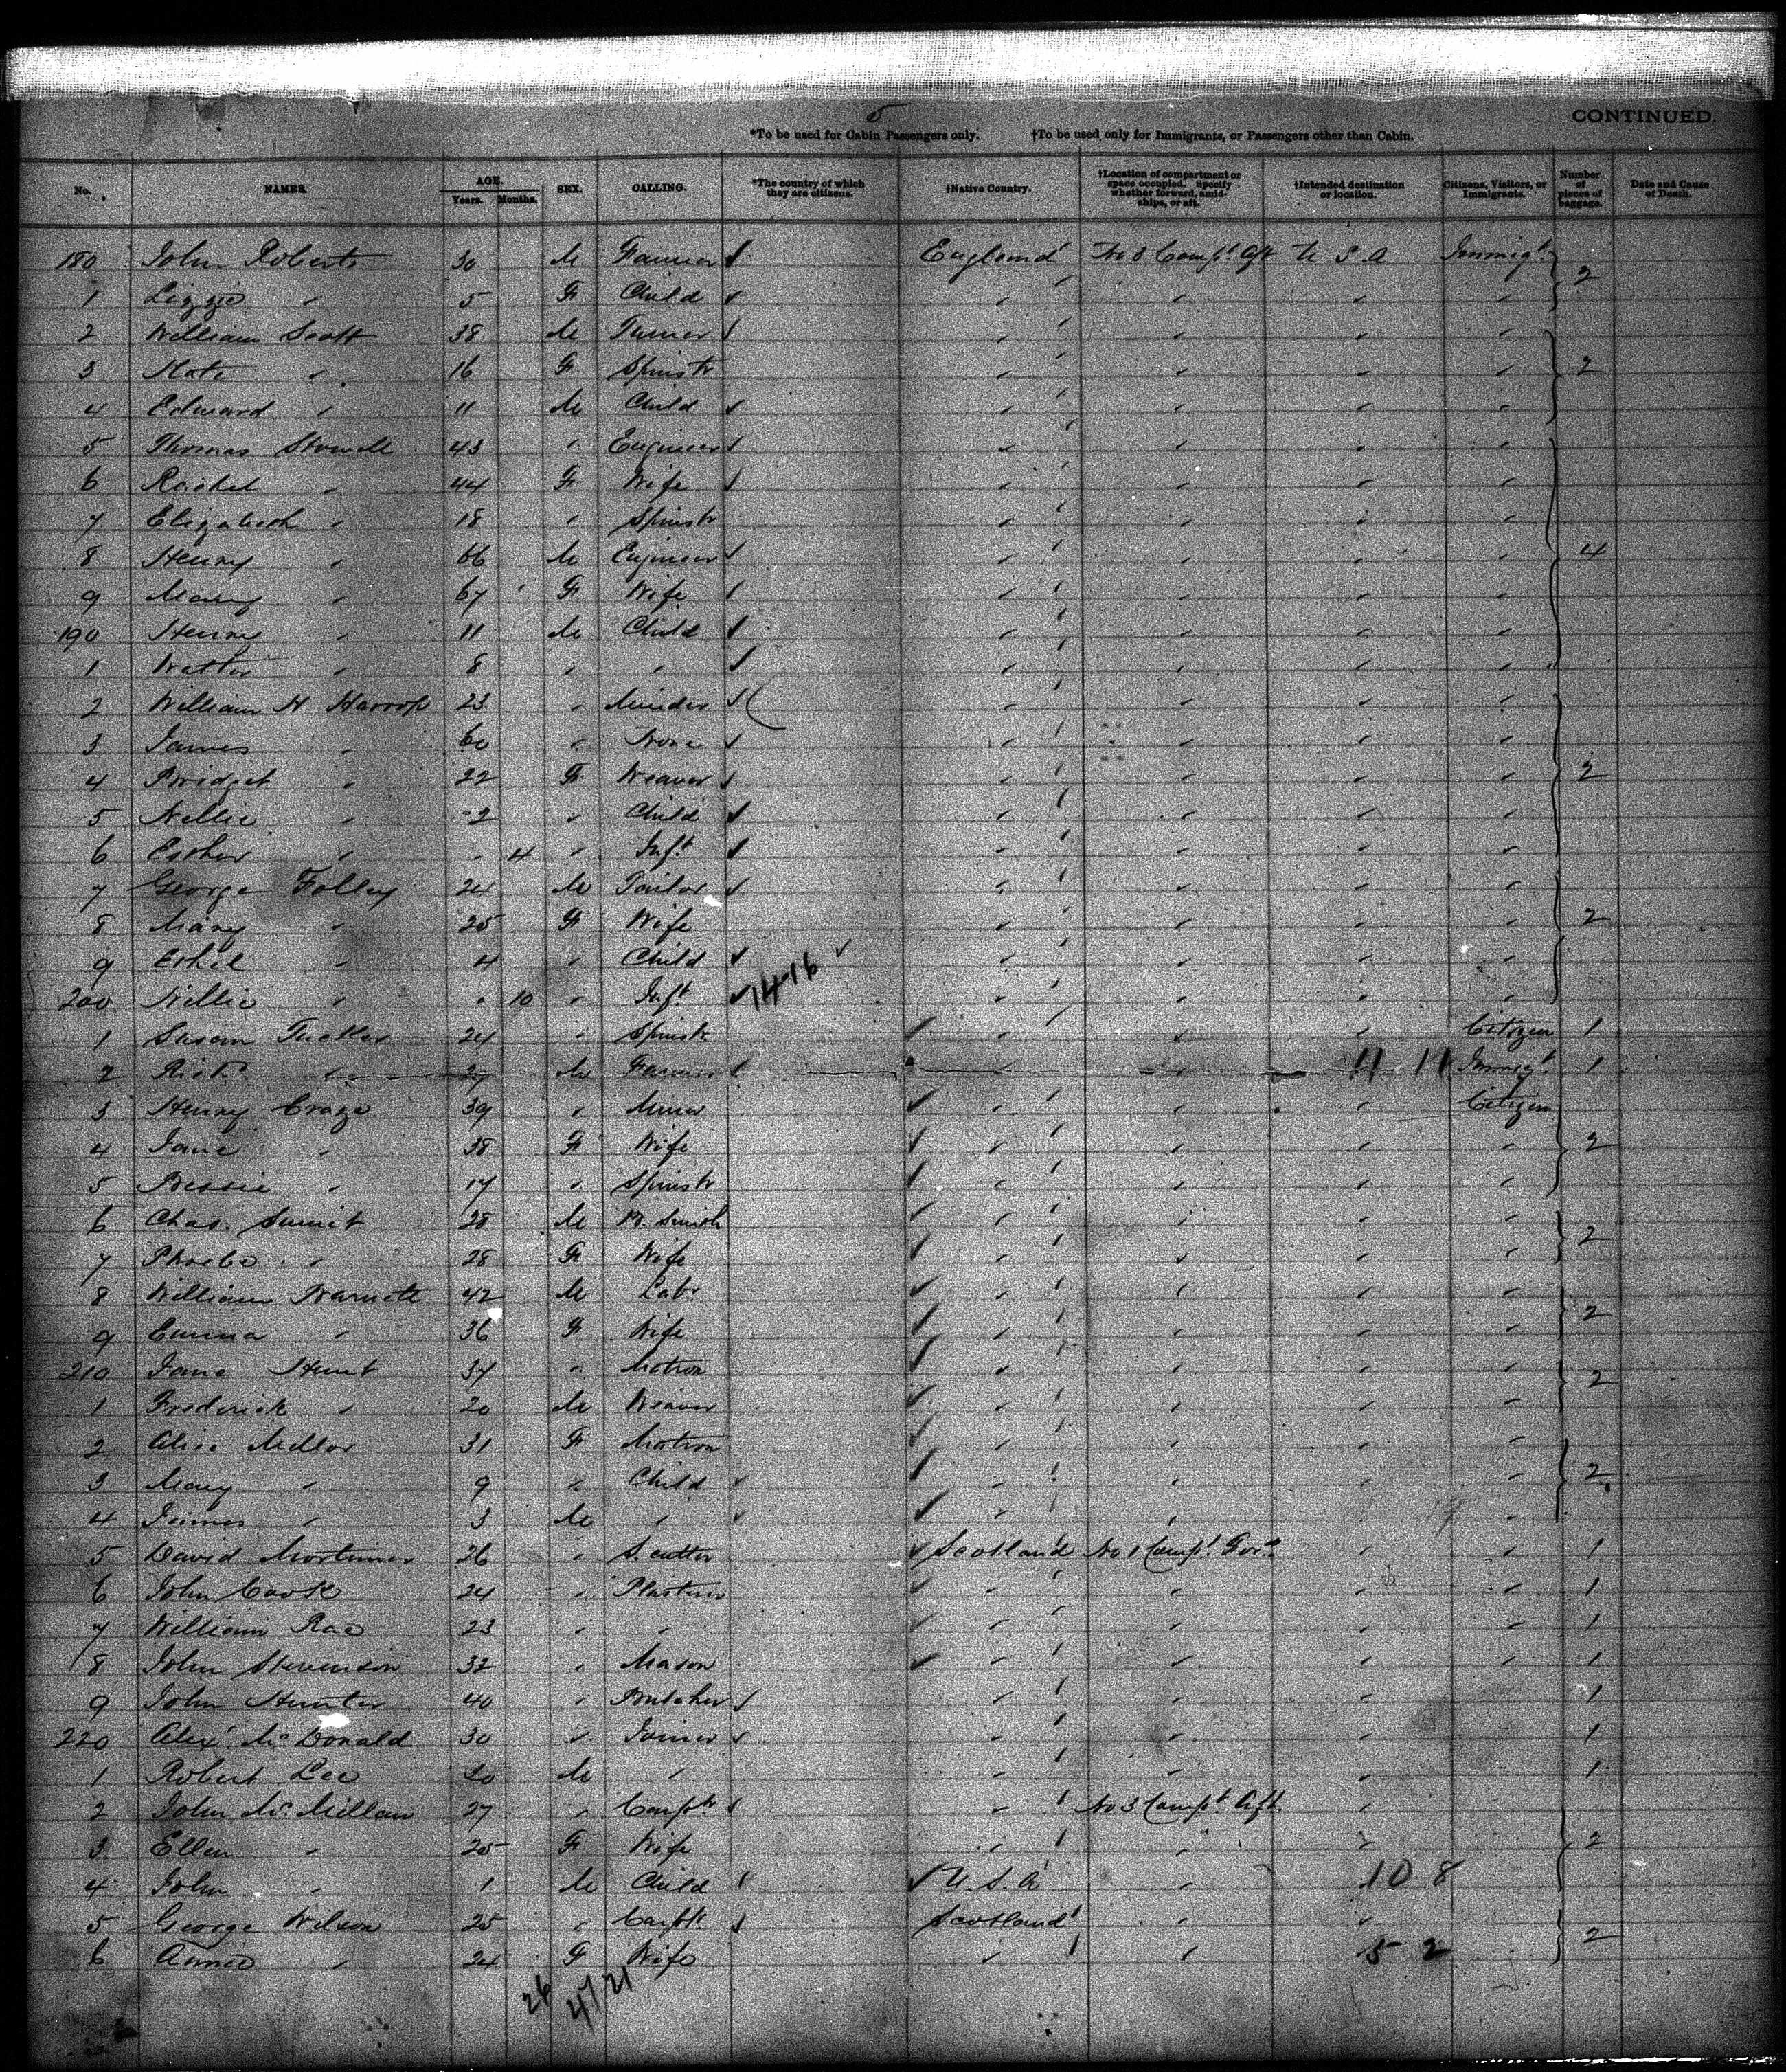 5
CONTINUED.
*To be used for Cabin Passengers only. †To be used only for Immigrants, or Passengers other than Cabin.
No. NAMES. AGE. Years. Months. SEX. CALLING. *The country of which they are citizens. †Native Country. †Location of compartment or space occupied. Specify whether forward, amidships, or aft. †Intended destination or location. Citizens, Visitors, or Immigrants. Number of pieces of baggage. Date and Cause of Death.
180 John Roberts 30 M Farmer England No 3 Compt Aft U S A Immigt 2
1 Lizzie " 5 F Child " " " "
2 William Scott 38 M Turner " " " "
3 Kate " 16 F Spinstr " " " " 2
4 Edward " 11 M Child " " " "
5 Thomas Stowell 43 " Engineer " " " "
6 Rachel " 44 F Wife " " " "
7 Elizabeth " 18 " Spinstr " " " "
8 Henry " 66 M Engineer " " " " 4
9 Mary " 67 F Wife " " " "
190 Henry " 11 M Child " " " "
1 Walter " 8 " " " " " "
2 William H Harrop 23 " Minder " " " "
3 James " 60 " None " " " "
4 Bridget " 22 F Weaver " " " " 2
5 Nellie " 2 " Child " " " "
6 Esther " " 4 " Inft " " " "
7 George Folley 24 M Tailor " " " "
8 Mary " 25 F Wife " " " " 2
9 Ethel " 4 " Child " " " "
200 Nellie " " 10 " Inft 14-16 " " " "
1 Susan Tucker 24 " Spinstr " " " Citizen 1
2 Richd " M Farmer " " 11 11 Immigt 1
3 Henry Craze 39 " Miner " " " Citizen
4 Jane " 38 F Wife " " " " 2
5 Bessie " 17 " Spinstr " " " "
6 Chas. 28 M B. Smith " " " " 2
7 Phoebe " 28 F Wife " " " "
8 William 42 M Labr " " " "
9 Emma " 36 F Wife " " " " 2
210 Jane Hunt 37 " Matron " " " " 2
1 Frederick " 20 M Weaver " " " "
2 Alice Mellor 31 F Matron " " " "
3 Mary " 9 " Child " " " " 2
4 James " 3 M " " " " "
5 David Mortimer 26 " S. cutter Scotland No 1 Compt Ford " " 1
6 John Cook 24 " Plasterer " " " " 1
7 William Rae 23 " " " " " " 1
8 John Stevenson 32 " Mason " " " " 1
9 John Hunter 40 " Butcher " " " " 1
220 Alexr McDonald 30 " Joiner " " " " 1
1 Robert Lee M " " " " " 1
2 John McMillan 27 " Carptr " No 3 Compt Aft. " "
3 Ellen " 25 F Wife " " " 2
4 John " 1 M Child U. S. A " 10 8
5 George Wilson 25 " Carptr Scotland " "
6 Annie " 24 F Wife " " 5 2 2
26 47 21